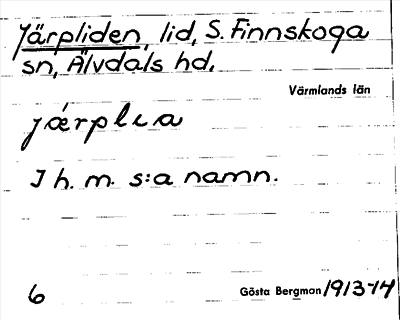 Järpliden, lid, S. Finnskoga
sn, Älvdals hd,
Värmlands län
jærplia
I h. m. s:a namn.
6
Gösta Bergman 1913-14